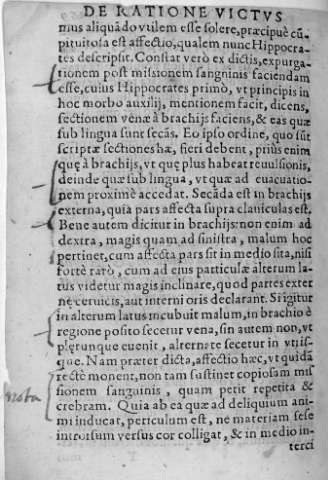 DE RATIONE VICTVS
mus aliquādo vtilem esse solere, præcipuè cū
pituitosa est affectio, qualem nunc Hippocra-
tes descripsit. Constat verò ex dictis, expurga-
tionem post missionem sanguinis faciendam
esse, cuius Hippocrates primò, vt principis in
hoc morbo auxilij, mentionem facit, dicens,
sectionem venæ à brachijs faciens, & eas quæ
sub lingua sunt secās. Eo ipso ordine, quo sūt
scriptæ sectiones hæ, fieri debent, priùs enim
quę à brachijs, vt quę plus habeat reuulsionis,
deinde quæ sub lingua, vt quæ ad euacuatio-
nem proximè accedat. Secāda est in brachijs
externa, quia pars affecta supra clauiculas est.
Bene autem dicitur in brachijs: non enim ad
dextra, magis quam ad sinistra, malum hoc
pertinet, cum affecta pars sit in medio sita, nisi
fortè rarò, cum ad eius particulæ alterum la-
tus videtur magis inclinare, quod partes exter
ne ceruicis, aut interni oris declarant. Si igitur
in alterum latus incubuit malum, in brachio è
regione posito secetur vena, sin autem non, vt
plęrunque euenit, alternate secetur in vtrīs-
que. Nam præter dicta, affectio hæc, vt quidā
rectè monent, non tam sustinet copiosam mis
sionem sanguinis, quam petit repetita &
nota
crebram. Quia ab ea quæ ad deliquium ani-
mi inducat, periculum est, ne materiam sese
introrsum versus cor colligat, & in medio in-
terci